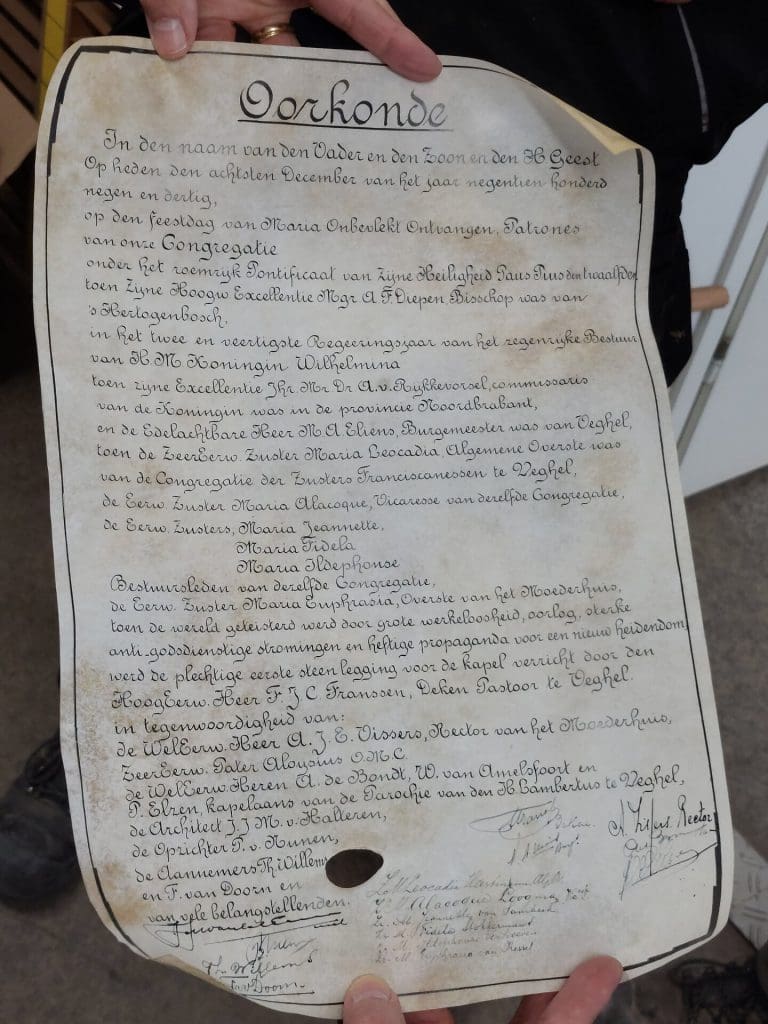 Oorkonde
In den naam van den Vader en den Zoon en den H. Geest
Op heden den achtsten December van het jaar negentien honderd
negen en dertig,
op den feestdag van Maria Onbevlekt Ontvangen, Patrones
van onze Congregatie
onder het roemrijk Pontificaat van Zijne Heiligheid Paus Pius den twaalfden
toen Zijne Hoogw. Excellentie Mgr. A. F. Diepen, Bisschop was van
's Hertogenbosch,
in het twee en veertigste Regeeringsjaar van het zegenrijke Bestuur
van H. M. Koningin Wilhelmina
toen zijne Excellentie Jhr. Mr. Dr. A. v. Rijkkevorsel, commissaris
van de Koningin was in de provincie Noordbrabant,
en de Edelachtbare Heer M. A. Eliens, Burgemeester was van Veghel,
toen de ZeerEerw. Zuster Maria Leocadia, Algemene Overste was
van de Congregatie der Zusters Franciscanessen te Veghel,
de Eerw. Zuster Maria Alacoque, Vicaresse van derelfde Congregatie,
de Eerw. Zusters, Maria Jeannette,
Maria Fidela
Maria Ildephonse
Bestuursleden van derelfde Congregatie,
de Eerw. Zuster Maria Euphrasia, Overste van het Moederhuis,
toen de wereld geteisterd werd door grote werkeloosheid, oorlog, sterke
anti-godsdienstige stromingen en heftige propaganda voor een nieuw heidendom
werd de plechtige eerste steen legging voor de kapel verricht door den
HoogEerw. Heer F. J. C. Franssen, Deken Pastoor te Veghel.
in tegenwoordigheid van:
de WelEerw. Heer A. J. E. Vissers, Rector van het Moederhuis,
ZeerEerw. Pater Aloysius O.M.C.
de WelEerw. Heren A. de Bondt, W. van Amelsfoort en
P. Elzen, kapelaans van de Parochie van den H. Lambertus te Veghel,
de Architect J. J. M. v. Halleren,
de Oprichter P. v. Nunen,
de Aannemers Th. Willems
en F. van Doorn en
van vele belangstellenden.
Rector
Zr. M. Leocadia
Zr. M. Alacoque
Zr. M. Jeannette van
Zr. M. Fidela
Zr. M. Ildephonse
Zr. M. Euphrasia van
Th. Willems
F. v. Doorn